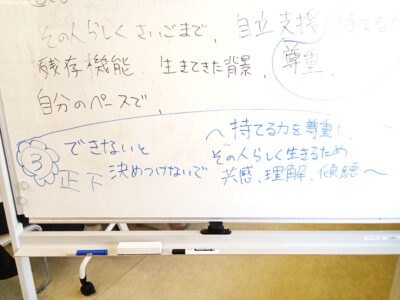 その人らしく さいごまで、自立支援、持てる力
残存機能、生きてきた背景、尊重、
自分のペースで、
③ できないと
決めつけないで
〜持てる力を尊重し、
その人らしく生きるため
共感、理解、傾聴〜